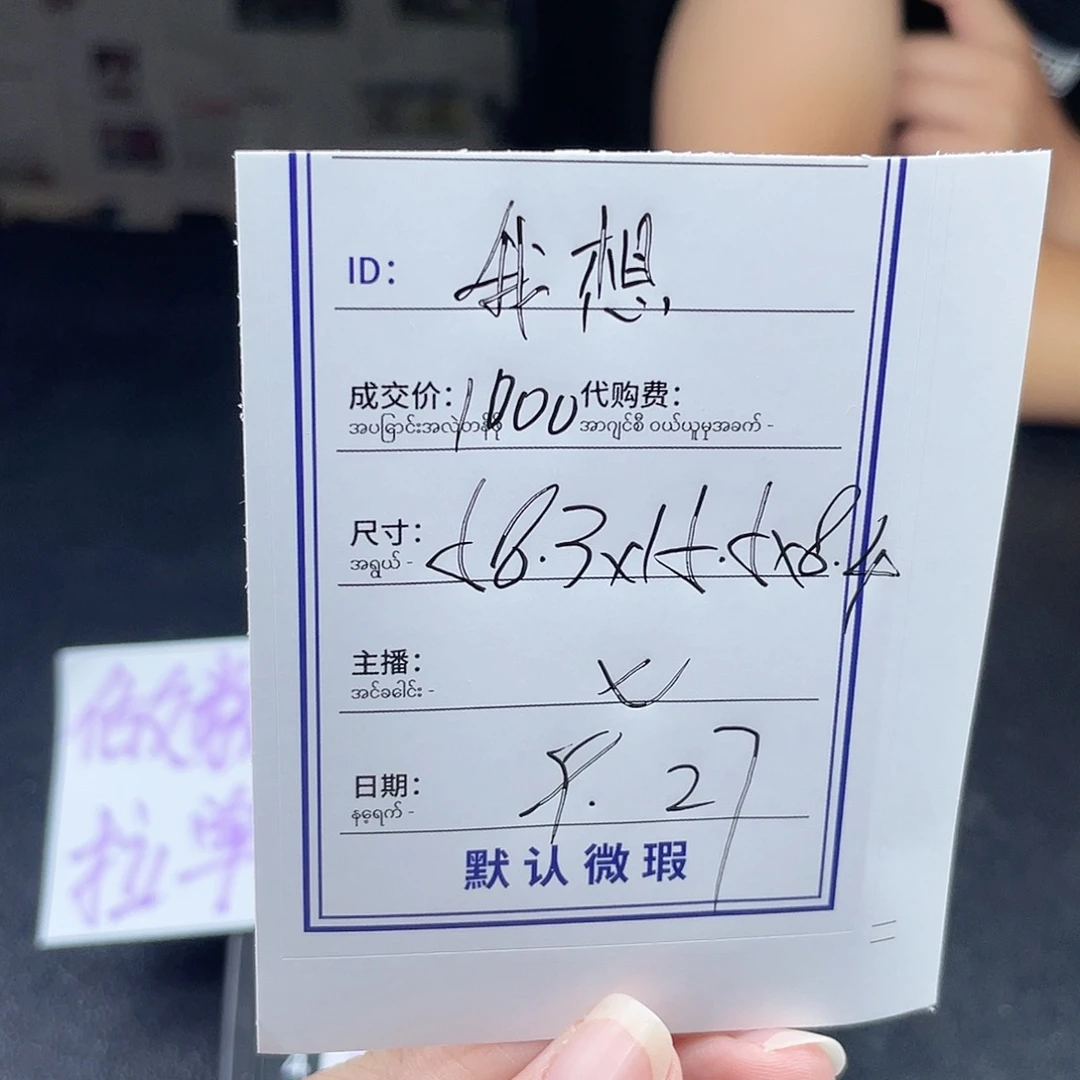 ID: 我想
成交价: 1000 代购费:
အပြောင်းအလဲတန်ဖိုး အာဂျင်စီ ဝယ်ယူမှုအခက် -
尺寸: 58.3x14.5x8.4
အရွယ် -
主播:
အင်ခေါင်း -
日期: 9.27
နေ့ရက် -
默认微瑕
拉单